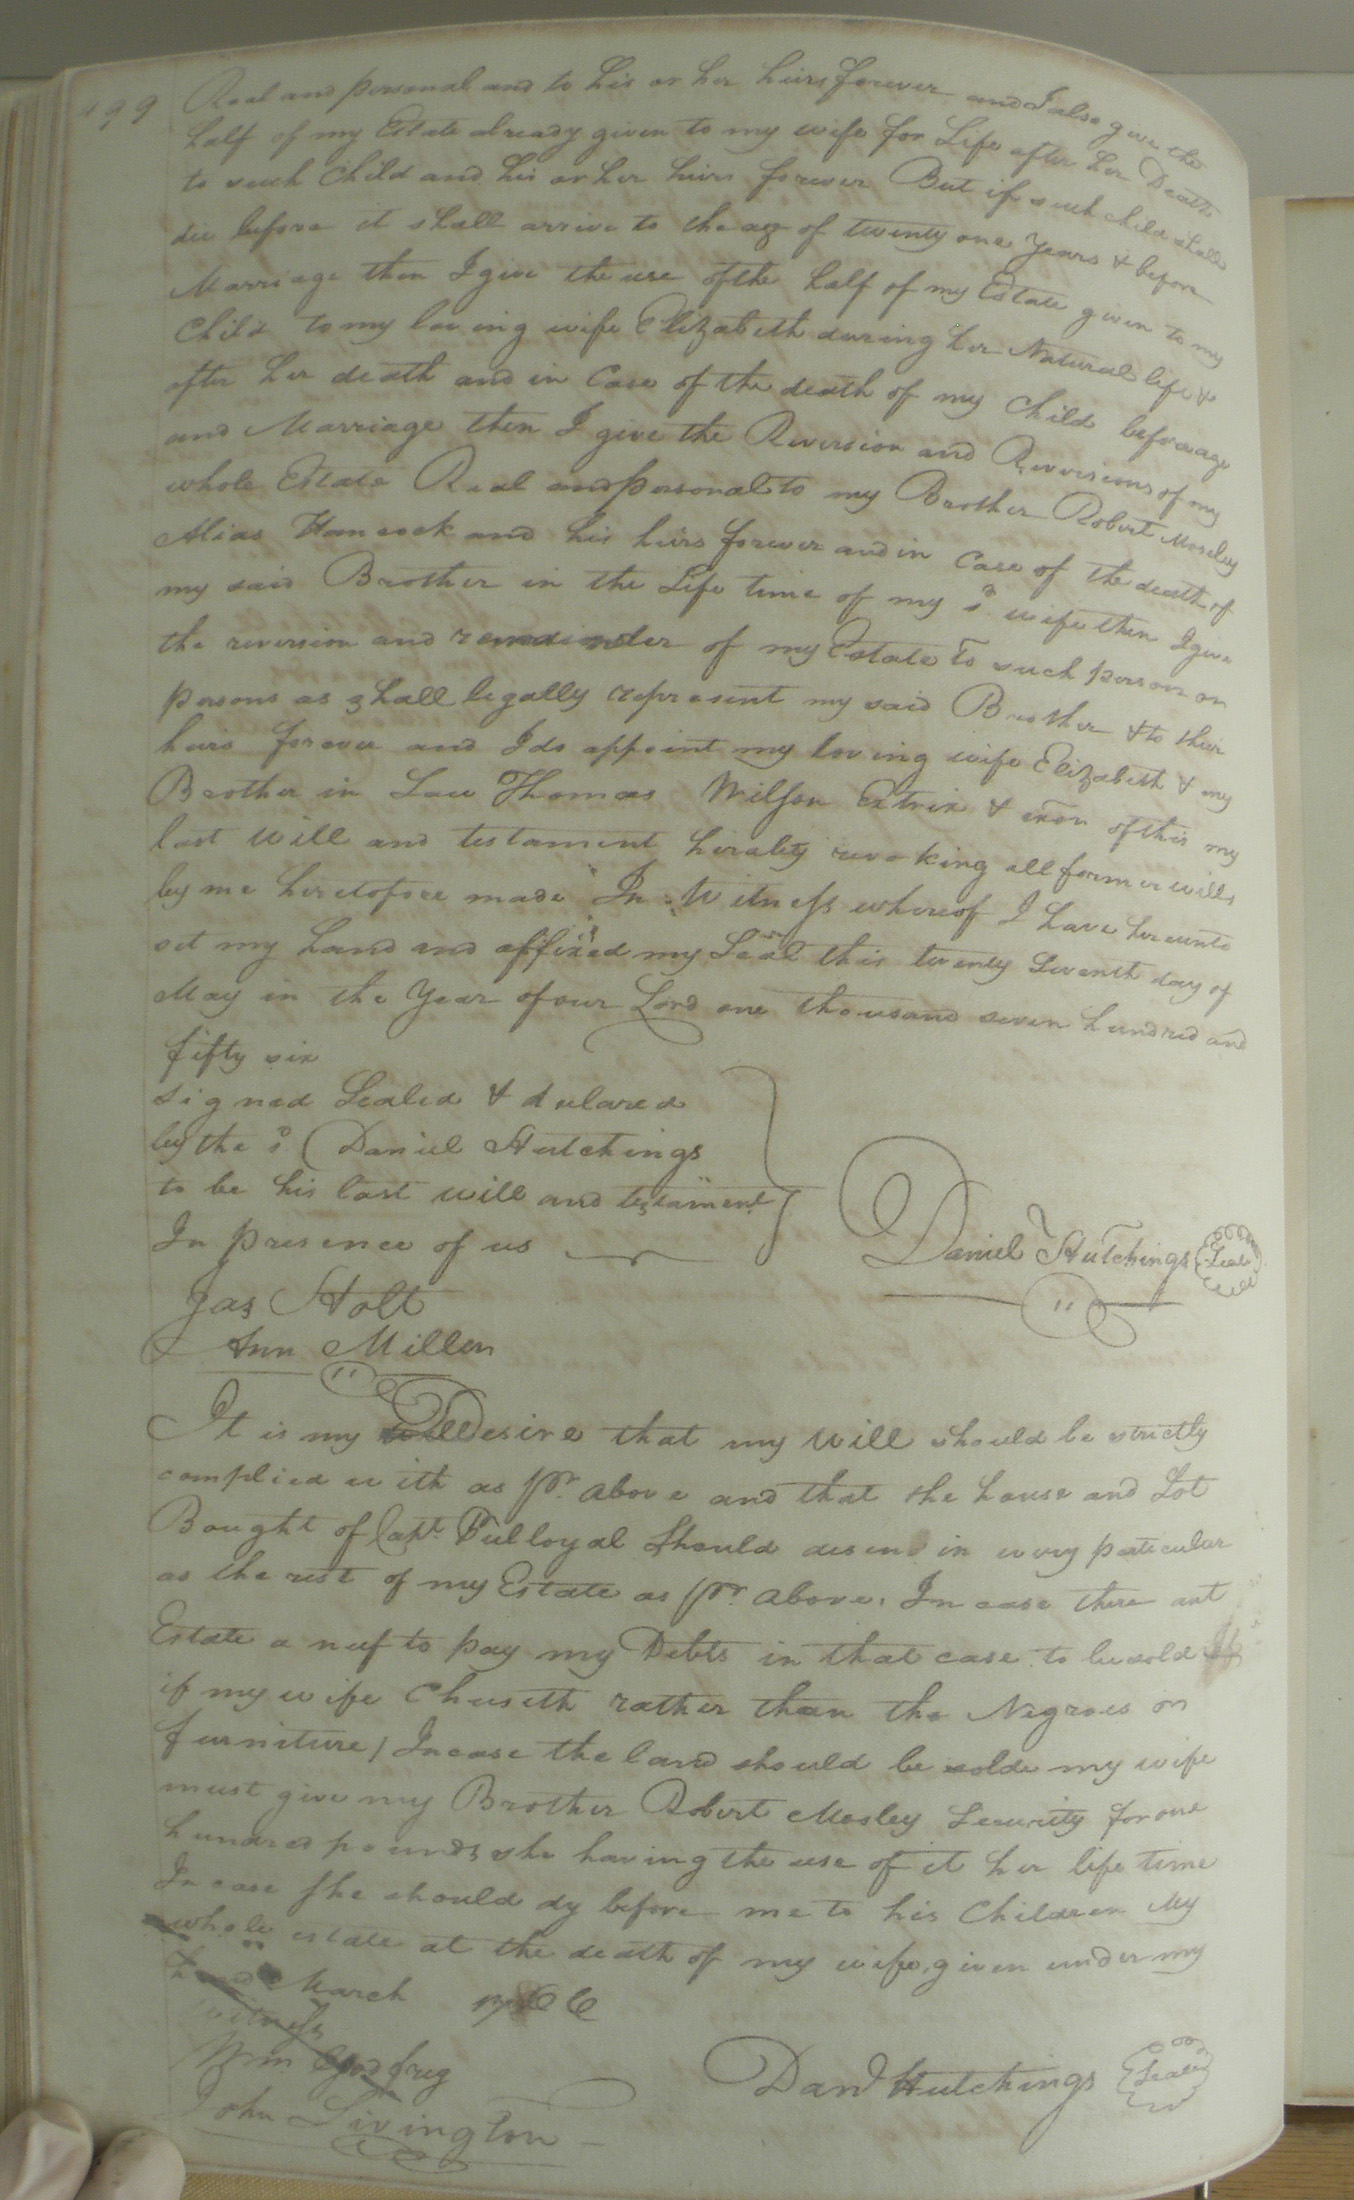 199
Real and personal and to his or her heirs forever and I also give the
half of my Estate already given to my wife for Life after her Death
to such Child and his or her heirs forever But if such child shall
die before it shall arrive to the age of twenty one Years & before
Marriage then I give the use of the half of my Estate given to my
Child to my loving wife Elizabeth during her Natural life &
after her death and in Case of the death of my Child before age
and Marriage then I give the Reversion and Reversions of my
whole Estate Real and personal to my Brother Robert Moseley
Alias Hancock and his heirs forever and in Case of the death of
my said Brother in the Life time of my sd wife then I give
the reversion and remainder of my Estate to such person or
persons as shall legally represent my said Brother & to their
heirs forever and I do appoint my loving wife Elizabeth & my
Brother in Law Thomas Willson Extrix & exor of this my
last will and testament hereby revoking all former wills
by me heretofore made In Witness whereof I have hereunto
set my hand and affixed my Seal this twenty Seventh day of
May in the Year of our Lord one thousand seven hundred and
fifty six
Signed Sealed & declared
by the sd Daniel Hutchings
to be his last will and testament
In presence of us
Daniel Hutchings Seal
Jas Holt
Ann Miller
It is my Desire that my will should be strictly
complied with as pr. above and that the house and Lot
Bought of Capt. Tulloyal Should desend in every particular
as the rest of my Estate as pr. above. In case there ant
Estate a nuf to pay my Debts in that case to be sold
if my wife Chuseth rather than the Negroes or
furniture / In case the land should be solde my wife
must give my Brother Robert Mosley Security for one
hundred pounds she having the use of it her life time
In case she should dy before me to his Children My
whole estate at the death of my wife, given under my
hand March
witness
Wm Godfrey
Danl Hutchings Seal
John Livington